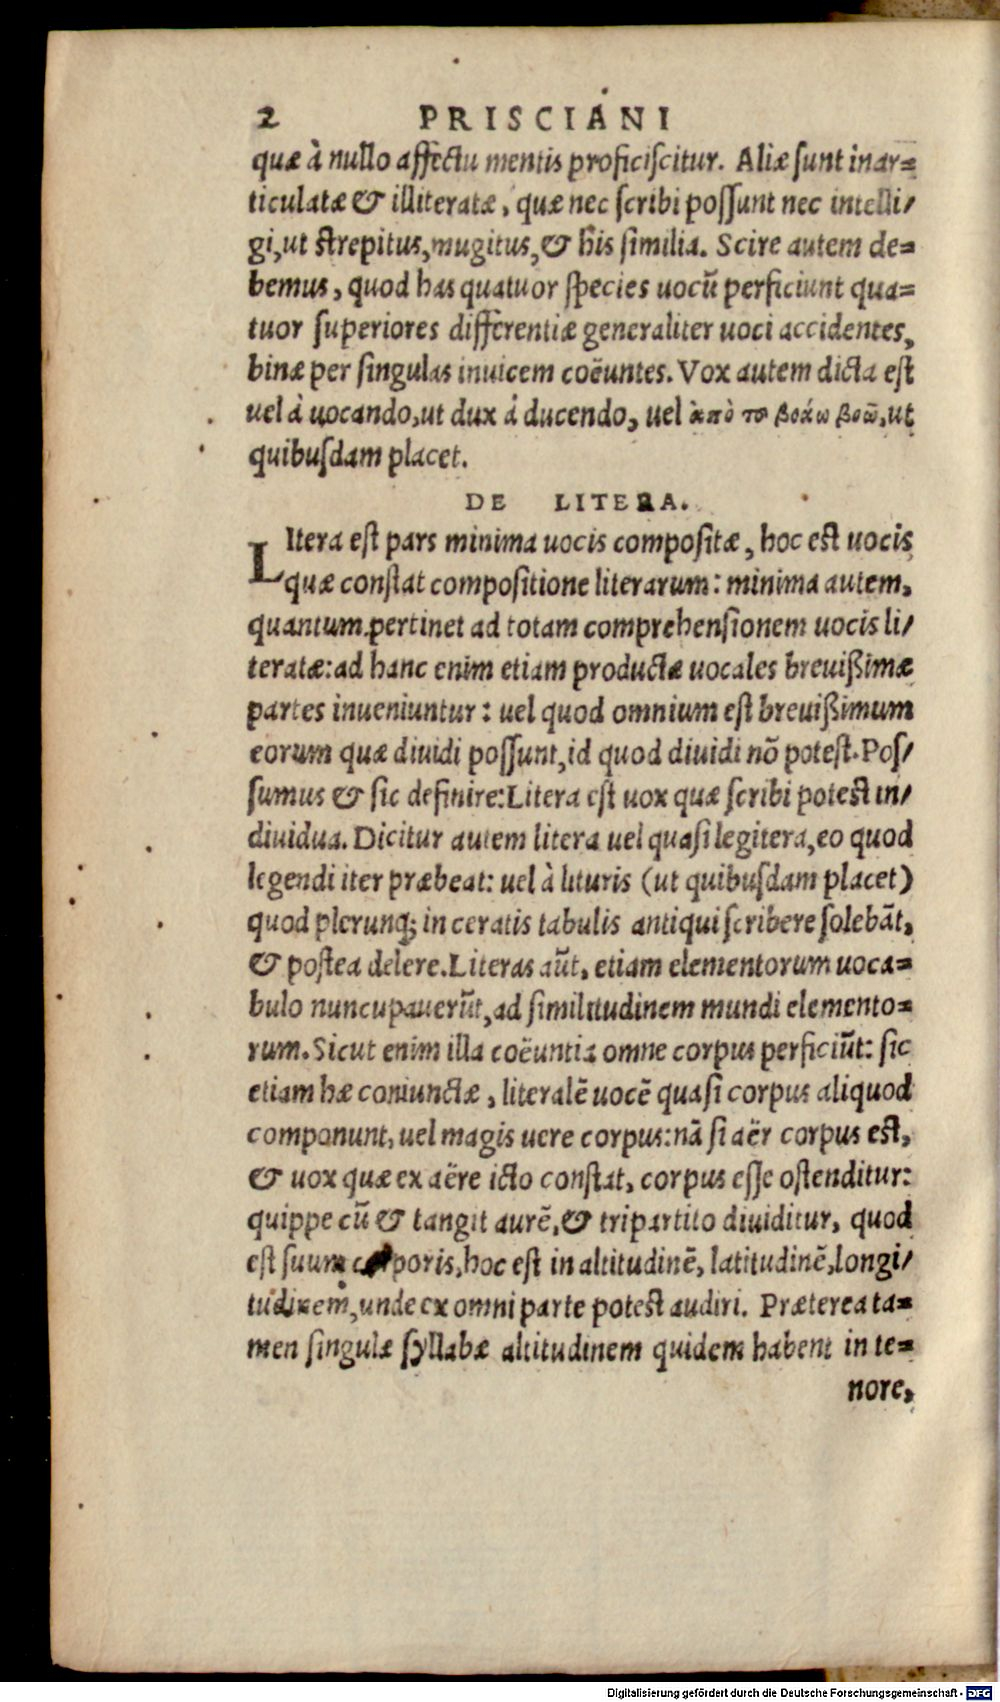 2 PRISCIANI
quæ à nullo affectu mentis proficiscitur. Aliæ sunt inar-
ticulatæ & illiteratæ, quæ nec scribi possunt nec intelli-
gi, ut strepitus, mugitus, & his similia. Scire autem de-
bemus, quod has quatuor species uocũ perficiunt qua-
tuor superiores differentiæ generaliter uoci accidentes,
binæ per singulas inuicem coëuntes. Vox autem dicta est
uel à uocando, ut dux à ducendo, uel ἀπὸ τοῦ βοάω βοῶ, ut
quibusdam placet.
DE LITERA.
LItera est pars minima uocis compositæ, hoc est uocis
quæ constat compositione literarum: minima autem,
quantum pertinet ad totam comprehensionem uocis li-
teratæ: ad hanc enim etiam productæ uocales breuißimæ
partes inueniuntur: uel quod omnium est breuißimum
eorum quæ diuidi possunt, id quod diuidi nõ potest. Pos-
sumus & sic definire: Litera est uox quæ scribi potest in-
diuidua. Dicitur autem litera uel quasi legitera, eo quod
legendi iter præbeat: uel à lituris (ut quibusdam placet)
quod plerunq; in ceratis tabulis antiqui scribere solebãt,
& postea delere. Literas aũt, etiam elementorum uoca-
bulo nuncupauerũt, ad similitudinem mundi elemento-
rum. Sicut enim illa coëuntia omne corpus perficiũt: sic
etiam hæ coniunctæ, literalẽ uocẽ quasi corpus aliquod
componunt, uel magis uere corpus: nã si aër corpus est,
& uox quæ ex aëre icto constat, corpus esse ostenditur:
quippe cũ & tangit aurẽ, & tripartito diuiditur, quod
est suum corporis, hoc est in altitudinẽ, latitudinẽ, longi-
tudinem, unde ex omni parte potest audiri. Præterea ta-
men singulæ syllabæ altitudinem quidem habent in te-
nore,
Digitalisierung gefördert durch die Deutsche Forschungsgemeinschaft - DFG